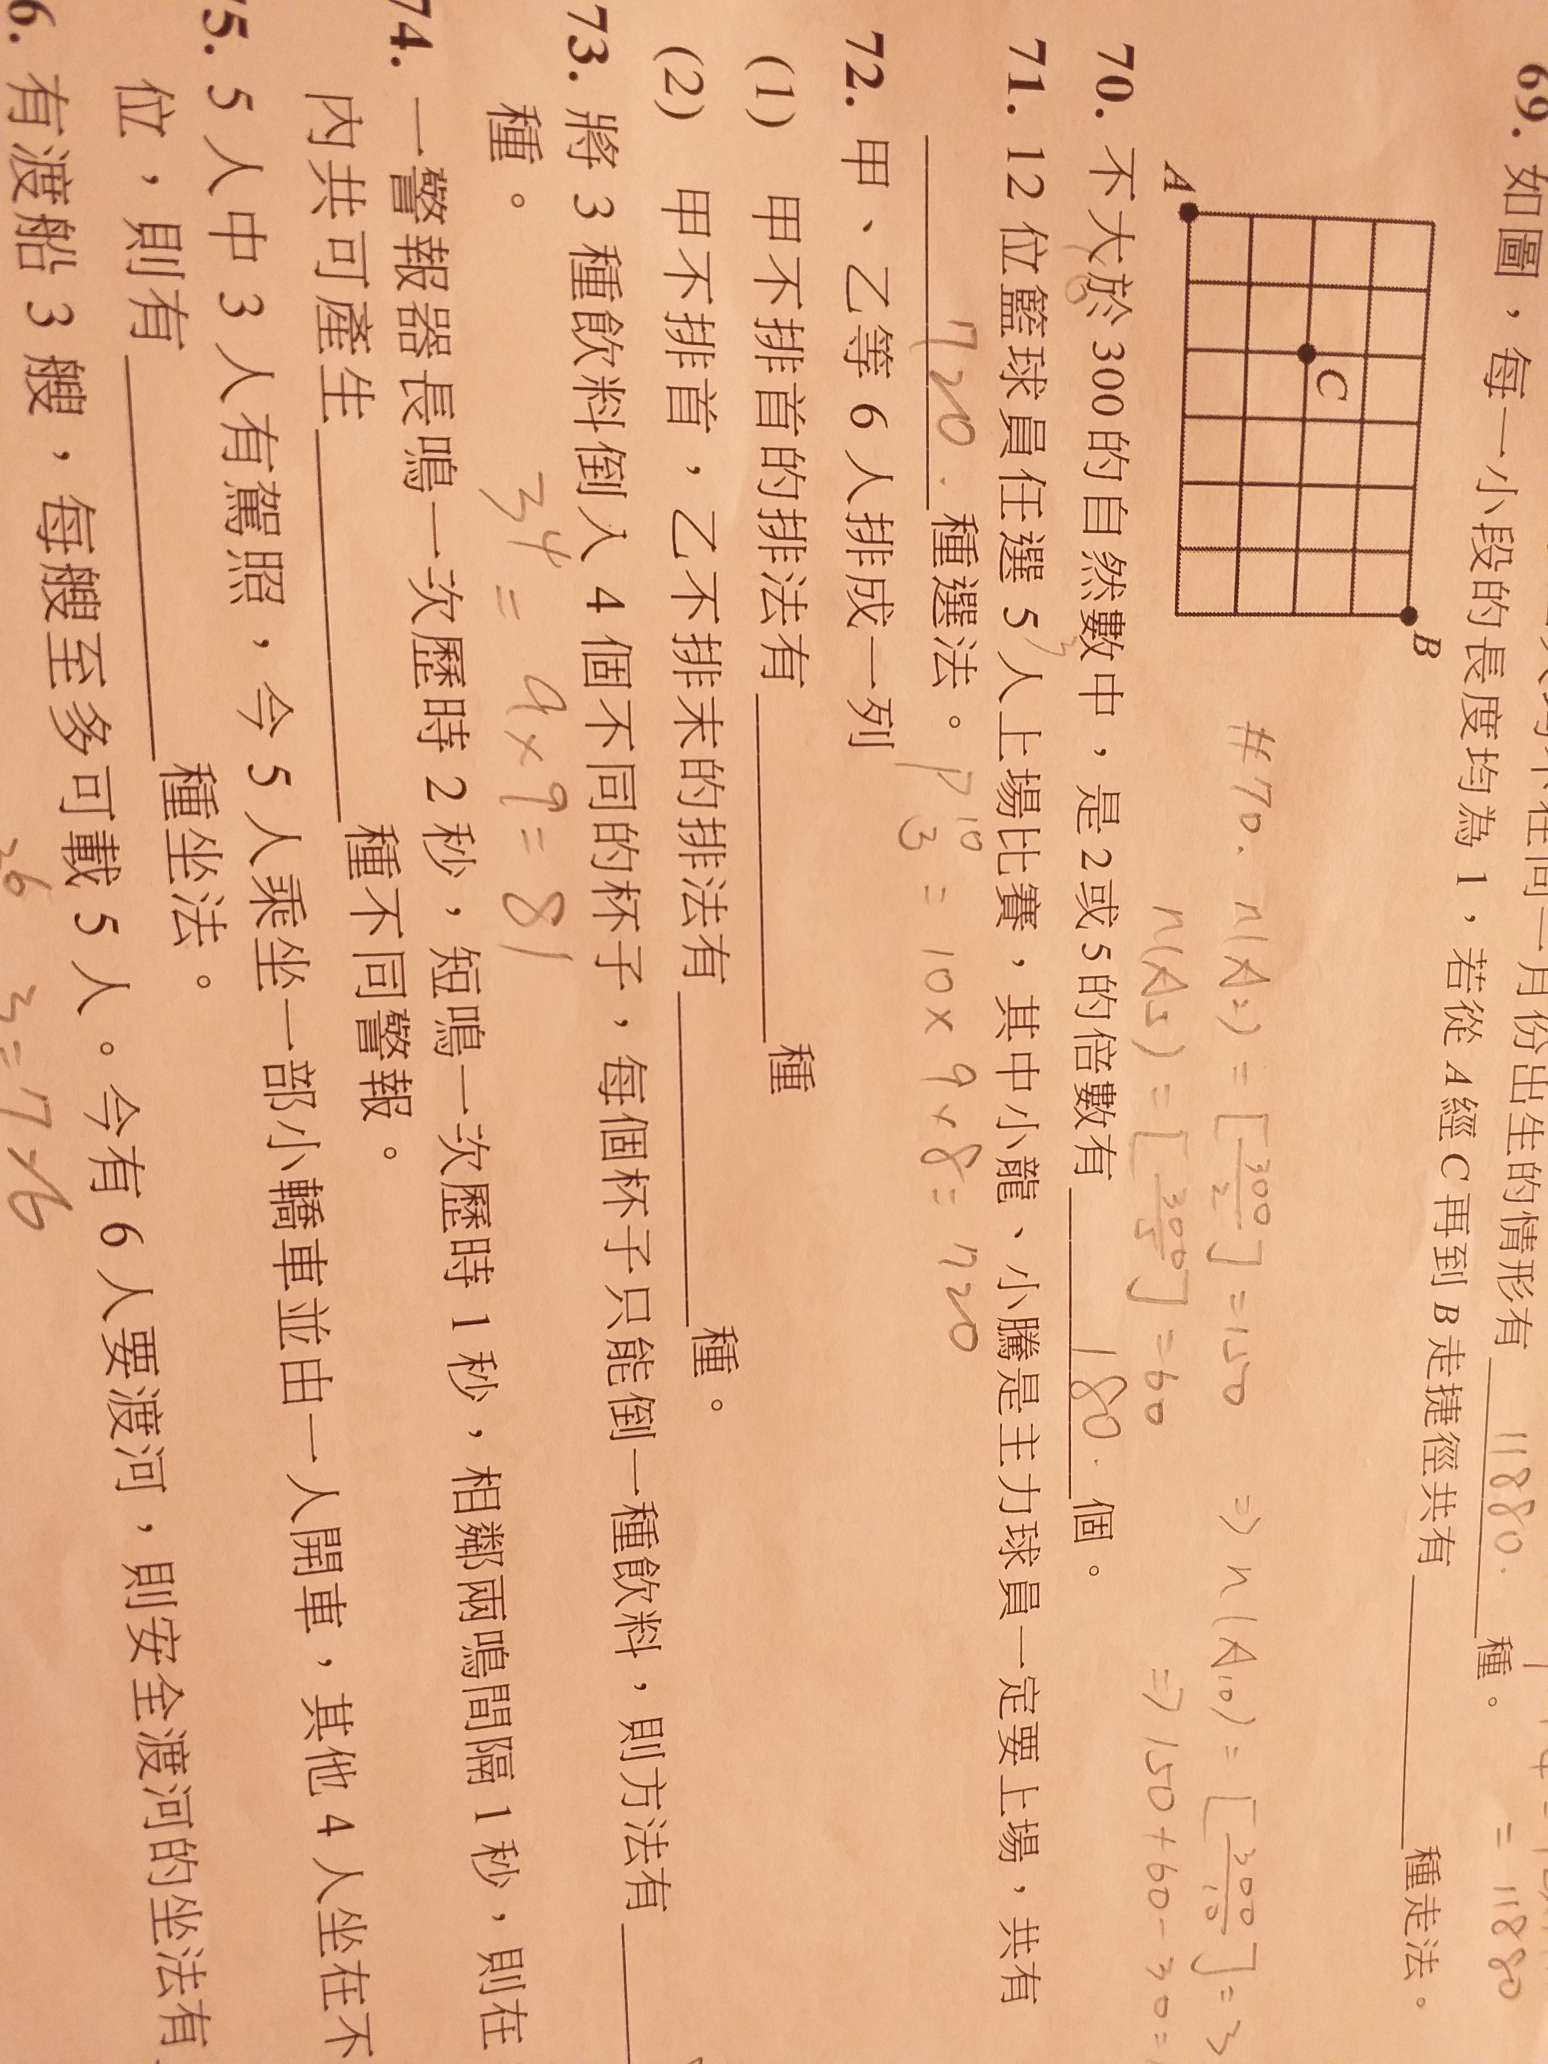 11880
= 11880
種。
69. 如圖，每一小段的長度均為 1，若從 A 經 C 再到 B 走捷徑共有 種走法。
A
C
B
#70. n(A2) = [300/2] = 150 ⇒ n(A10) = [300/10] = 3
n(A5) = [300/5] = 60 ⇒ 150 + 60 - 30 =
70. 不大於 300 的自然數中，是 2 或 5 的倍數有 180. 個。
71. 12 位籃球員任選 5 人上場比賽，其中小龍、小騰是主力球員一定要上場，共有
720. 種選法。 P 10 3 = 10 × 9 × 8 = 720
72. 甲、乙等 6 人排成一列
(1) 甲不排首的排法有 種
(2) 甲不排首，乙不排末的排法有 種。
73. 將 3 種飲料倒入 4 個不同的杯子，每個杯子只能倒一種飲料，則方法有
種。 3^4 = 9 × 9 = 81
74. 一警報器長鳴一次歷時 2 秒，短鳴一次歷時 1 秒，相鄰兩鳴間隔 1 秒，則在
內共可產生 種不同警報。
5. 5 人中 3 人有駕照，今 5 人乘坐一部小轎車並由一人開車，其他 4 人坐在不
位，則有 種坐法。
6. 有渡船 3 艘，每艘至多可載 5 人。今有 6 人要渡河，則安全渡河的坐法有